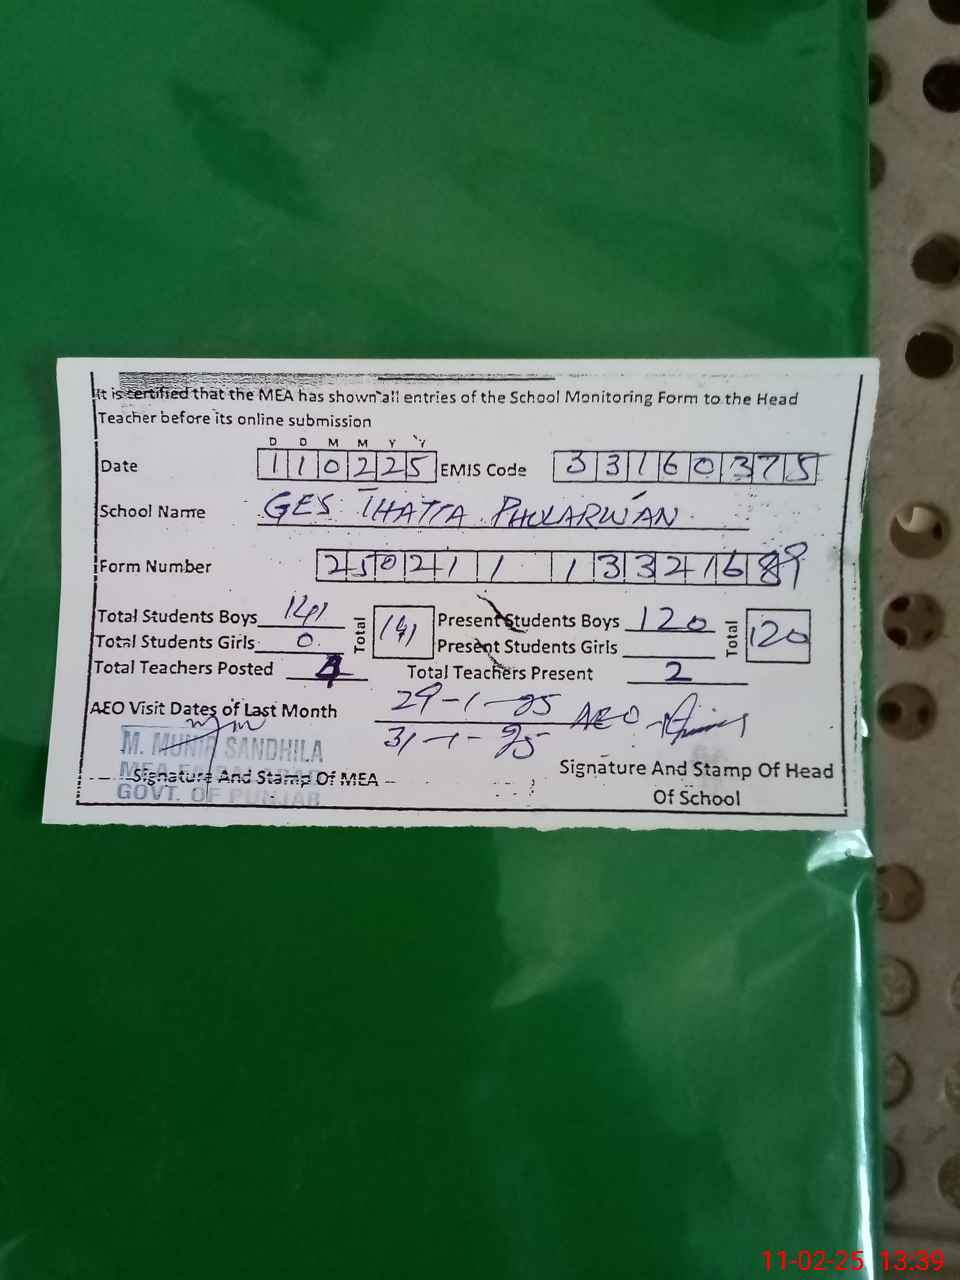 It is certified that the MEA has shown all entries of the School Monitoring Form to the Head
Teacher before its online submission
D D M M Y Y
Date 110225 EMIS Code 33160375
School Name GES THATTA PHULARWAN
Form Number 250211 1 1332168
Total Students Boys 141 Total 141 Present Students Boys 120 Total 120
Total Students Girls 0 Present Students Girls
Total Teachers Posted 4 Total Teachers Present 2
AEO Visit Dates of Last Month 29-1-25 AEO
31-1-25
M. MUNIR SANDHILA
Signature And Stamp Of MEA
GOVT. OF PUNJAB
Signature And Stamp Of Head
Of School
11-02-25 13:39